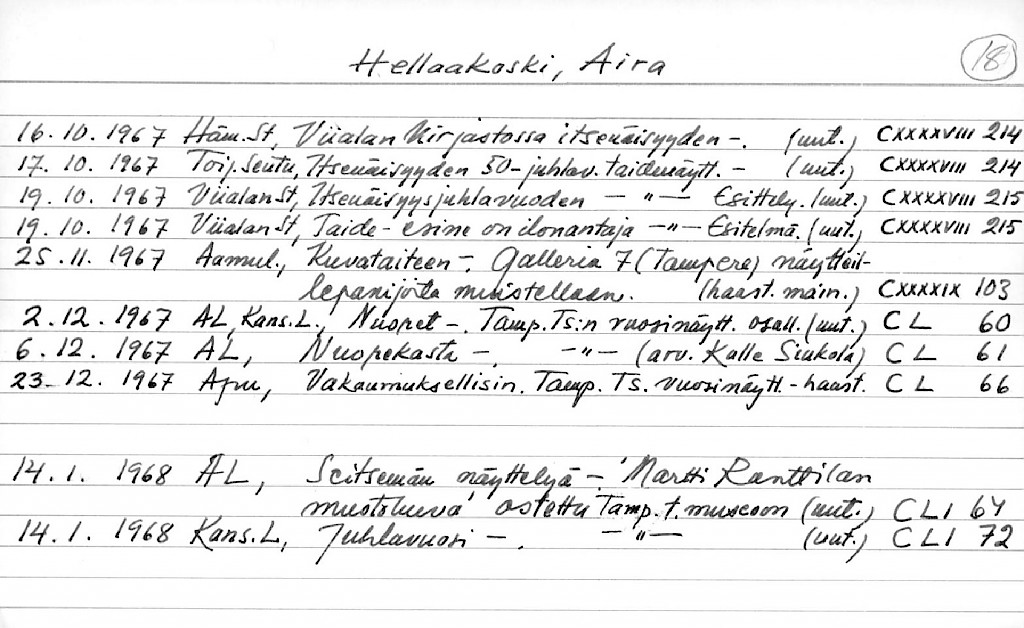 Hellaakoski, Aira 18
16.10.1967 Häm.St, Viialan Kirjastossa itsenäisyyden -. (uut.) CXXXXVIII 214
17.10.1967 Toij.Seutu, Itsenäisyyden 50-juhlav.taidenäytt. - (uut.) CXXXXVIII 214
19.10.1967 Viialan St, Itsenäisyysjuhlavuoden - " - Esittely. (uut.) CXXXXVIII 215
19.10.1967 Viialan St, Taide-esine on ilonantaja - " - Esitelmä. (uut.) CXXXXVIII 215
25.11.1967 Aamul., Kuvataiteen -. Galleria 7 (Tampere) näytteil-
lepanijoita muistellaan. (haast. main.) CXXXXIX 103
2.12.1967 AL, Kans.L., Nuoret -. Tamp.Ts:n vuosinäytt. osall. (uut.) CL 60
6.12.1967 AL, Nuopekasta -. - " - (arv. Kalle Siukola) CL 61
23.12.1967 Apu, Vakaumuksellisin. Tamp. Ts. vuosinäytt.-haast. CL 66
14.1.1968 AL, Seitsemän näyttelyä -. 'Martti Ranttilan
muotokuva' ostettu Tamp.t.museoon (uut.) CLI 64
14.1.1968 Kans.L, Juhlavuosi -. - " - (uut.) CLI 72